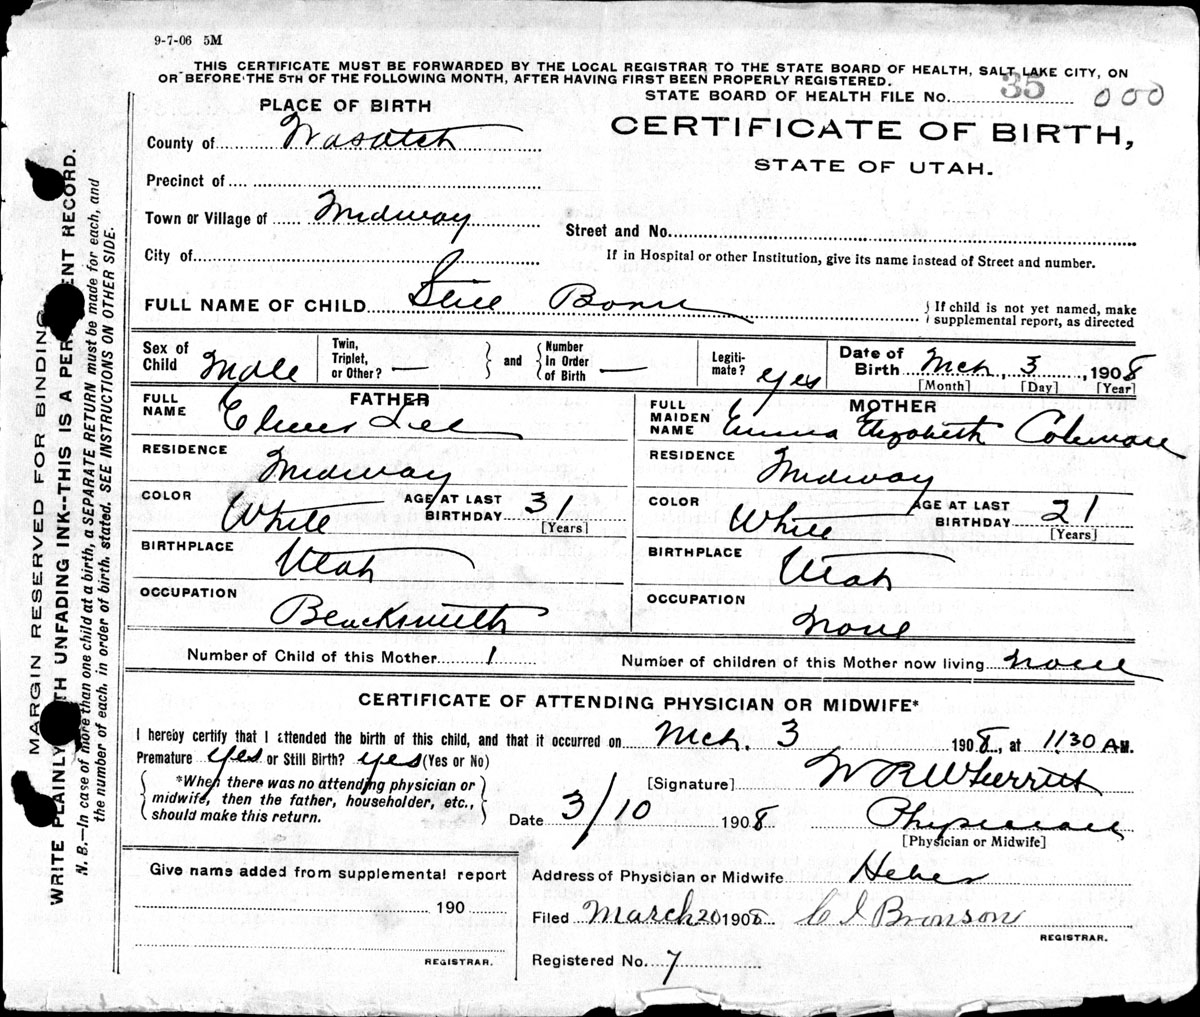 9-7-06 5M
THIS CERTIFICATE MUST BE FORWARDED BY THE LOCAL REGISTRAR TO THE STATE BOARD OF HEALTH, SALT LAKE CITY, ON
OR BEFORE THE 5TH OF THE FOLLOWING MONTH, AFTER HAVING FIRST BEEN PROPERLY REGISTERED.
STATE BOARD OF HEALTH FILE No. 35 000
PLACE OF BIRTH
CERTIFICATE OF BIRTH,
STATE OF UTAH.
County of Wasatch
Precinct of
Town or Village of Midway
Street and No.
City of
If in Hospital or other Institution, give its name instead of Street and number.
FULL NAME OF CHILD Still Born
} If child is not yet named, make
supplemental report, as directed
Sex of Child Male
Twin, Triplet, or Other? —
} and { Number in Order of Birth —
Legitimate? yes
Date of Birth Mch. 3, 1908
[Month] [Day] [Year]
FATHER
FULL NAME Elmer Lee
RESIDENCE Midway
COLOR White
AGE AT LAST BIRTHDAY 31
[Years]
BIRTHPLACE Utah
OCCUPATION Blacksmith
MOTHER
FULL MAIDEN NAME Emma Elizabeth Coleman
RESIDENCE Midway
COLOR White
AGE AT LAST BIRTHDAY 21
[Years]
BIRTHPLACE Utah
OCCUPATION None
Number of Child of this Mother 1
Number of children of this Mother now living none
CERTIFICATE OF ATTENDING PHYSICIAN OR MIDWIFE*
I hereby certify that I attended the birth of this child, and that it occurred on Mch. 3 1908, at 11.30 A M.
Premature yes or Still Birth? yes (Yes or No)
*When there was no attending physician or
midwife, then the father, householder, etc.,
should make this return.
[Signature] W R Wherritt
Date 3/10 1908
Physician
[Physician or Midwife]
Give name added from supplemental report
190
REGISTRAR.
Address of Physician or Midwife Heber
Filed March 20 1908 C I Bronson
REGISTRAR.
Registered No. 7
MARGIN RESERVED FOR BINDING
WRITE PLAINLY WITH UNFADING INK--THIS IS A PERMANENT RECORD.
N. B.—In case of more than one child at a birth, a SEPARATE RETURN must be made for each, and
the number of each, in order of birth, stated. SEE INSTRUCTIONS ON OTHER SIDE.